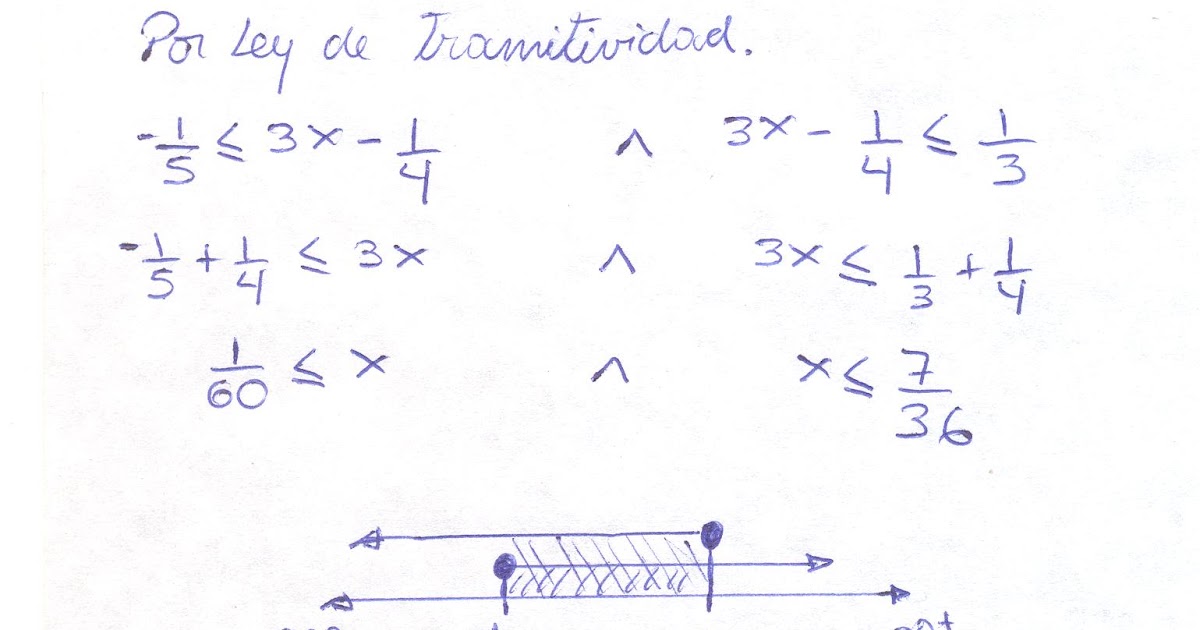 Por Ley de Transitividad.
-1/5 ≤ 3x - 1/4 ∧ 3x - 1/4 ≤ 1/3
-1/5 + 1/4 ≤ 3x ∧ 3x ≤ 1/3 + 1/4
1/60 ≤ x ∧ x ≤ 7/36